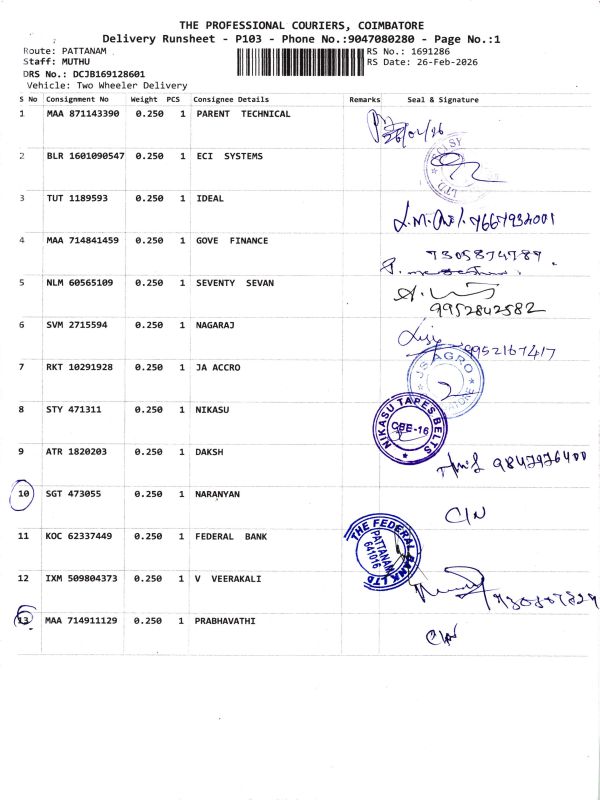 THE PROFESSIONAL COURIERS, COIMBATORE
Delivery Runsheet - P103 - Phone No.:9047080280 - Page No.:1
Route: PATTANAM
Staff: MUTHU
RS No.: 1691286
RS Date: 26-Feb-2026
DRS No.: DCJB169128601
Vehicle: Two Wheeler Delivery
S No Consignment No Weight PCS Consignee Details Remarks Seal & Signature
1 MAA 871143390 0.250 1 PARENT TECHNICAL 26/02/26
2 BLR 1601090547 0.250 1 ECI SYSTEMS
3 TUT 1189593 0.250 1 IDEAL
4 MAA 714841459 0.250 1 GOVE FINANCE
5 NLM 60565109 0.250 1 SEVENTY SEVAN 9952842582
6 SVM 2715594 0.250 1 NAGARAJ 9952167417
7 RKT 10291928 0.250 1 JA ACCRO JS AGRO
8 STY 471311 0.250 1 NIKASU NIKASU TAPES BELTS CBE-16
9 ATR 1820203 0.250 1 DAKSH
10 SGT 473055 0.250 1 NARANYAN C/N
11 KOC 62337449 0.250 1 FEDERAL BANK THE FEDERAL BANK LTD PATTANAM 641016
12 IXM 509804373 0.250 1 V VEERAKALI
13 MAA 714911129 0.250 1 PRABHAVATHI C/N